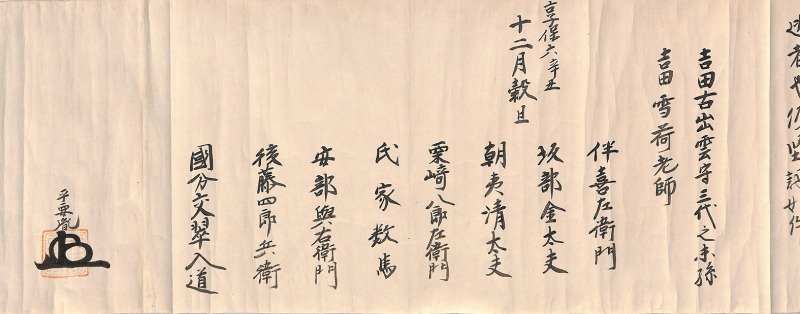 吉田古出雲守三代之末孫
吉田雪荷老師
伴喜左衛門
坂部金太夫
朝夷清太夫
栗崎八郎左衛門
氏家数馬
安部與右衛門
後藤四郎兵衛
國分文翠入道
享保六辛丑
十二月穀旦